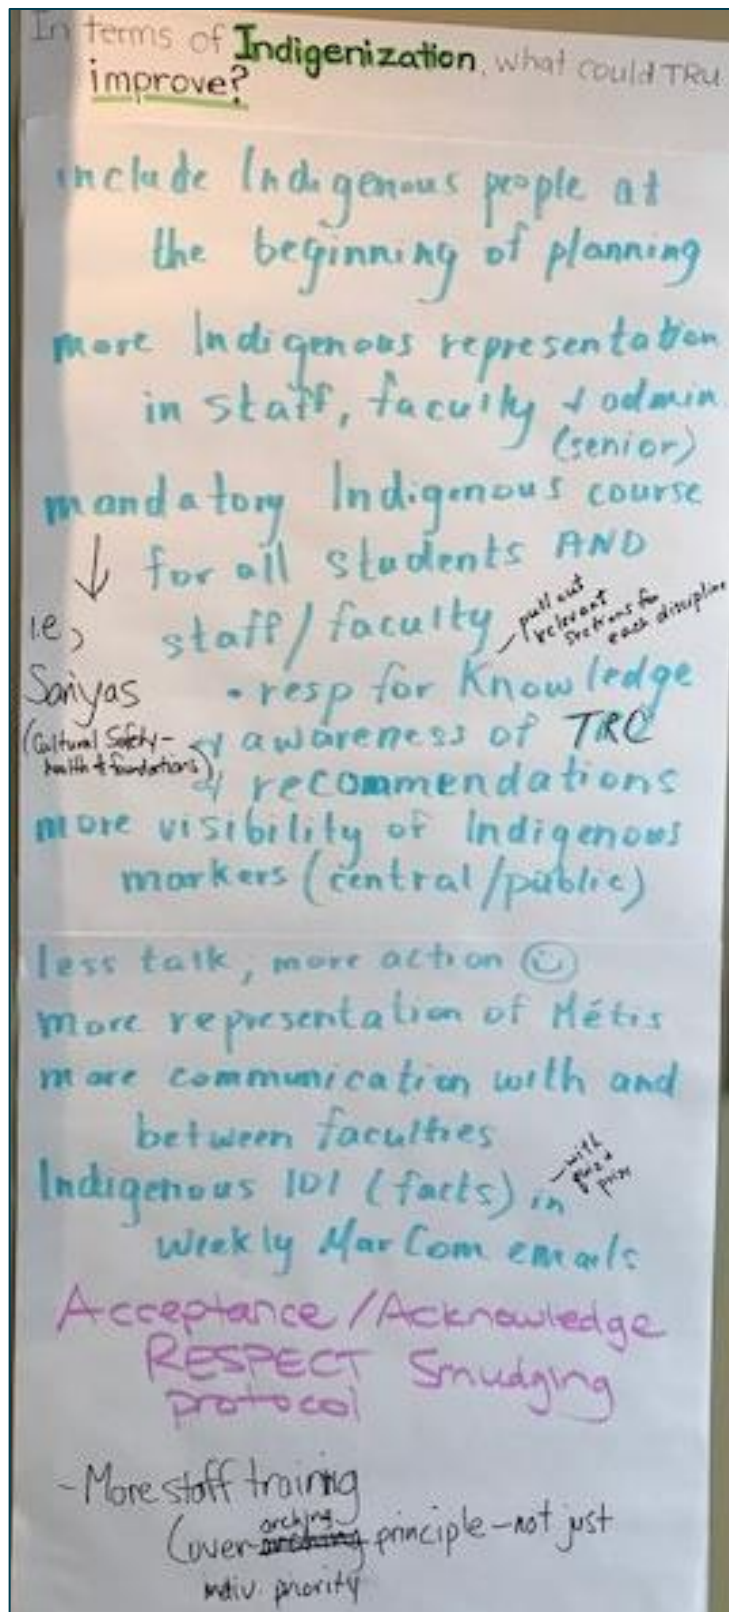 In terms of Indigenization, what could TRU
improve?
include Indigenous people at
the beginning of planning
more Indigenous representation
in staff, faculty & admin
(senior)
mandatory Indigenous course
for all students AND
staff/faculty
pull out
relevant
sections for
each discipline
i.e,
Sanyas
(Cultural Safety-
health & foundations)
• resp for Knowledge
& awareness of TRC
& recommendations
more visibility of Indigenous
markers (central/public)
less talk, more action
more representation of Métis
more communication with and
between faculties
Indigenous 101 (facts) in
with
weekly MarCom emails
Acceptance/Acknowledge
RESPECT Smudging
protocol
- More staff training
(over-arching principle - not just
indiv. priority